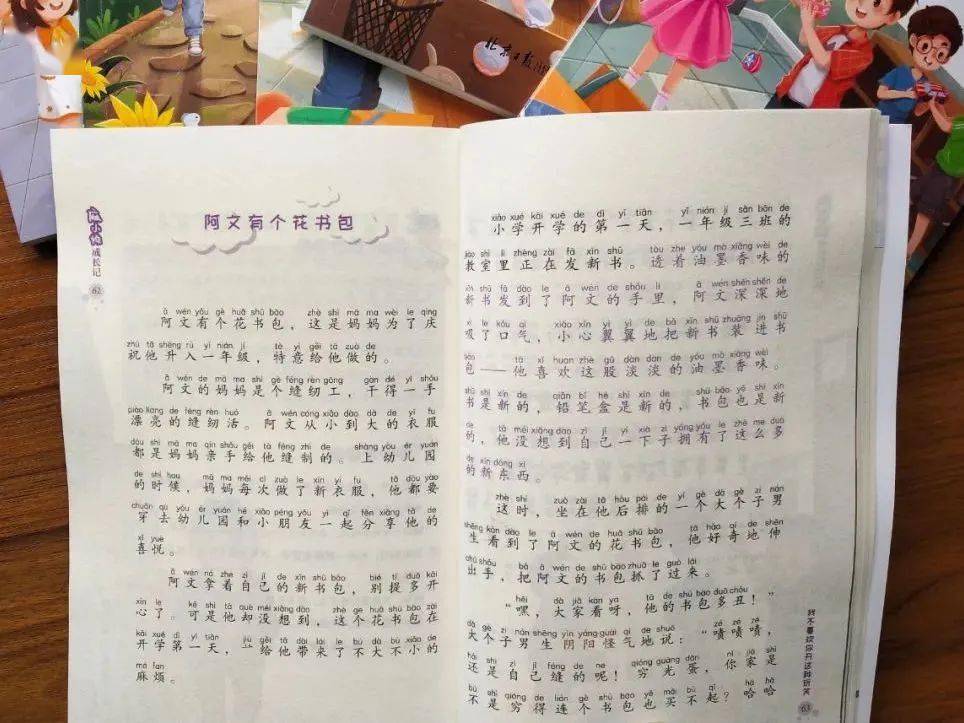 北京日报
阿文有个花书包
成长记
62
ā wén yǒu gè huā shū bāo zhè shì mā ma wèi le qìng
阿文有个花书包，这是妈妈为了庆
zhù tā shēng rù yī nián jí tè yì gěi tā zuò de
祝他升入一年级，特意给他做的。
ā wén de mā ma shì gè féng rèn gōng gàn dé yì shǒu
阿文的妈妈是个缝纫工，干得一手
piào liang de féng rèn huó ā wén cóng xiǎo dào dà de yī fu
漂亮的缝纫活。阿文从小到大的衣服
dōu shì mā ma qīn shǒu gěi tā féng zhì de shàng yòu ér yuán
都是妈妈亲手给他缝制的。上幼儿园
de shí hou mā ma měi cì zuò le xīn yī fu tā dōu yào
的时候，妈妈每次做了新衣服，他都要
chuān qù yòu ér yuán hé xiǎo péng yǒu yì qǐ fēn xiǎng tā de
穿去幼儿园和小朋友一起分享他的
xǐ yuè
喜悦。
ā wén ná zhe zì jǐ de xīn shū bāo bié tí duō kāi
阿文拿着自己的新书包，别提多开
xīn le kě shì tā què méi xiǎng dào zhè ge huā shū bāo zài
心了。可是他却没想到，这个花书包在
kāi xué dì yī tiān jiù gěi tā dài lái le bú dà bù xiǎo de
开学第一天，就给他带来了不大不小的
má fan
麻烦。
xiǎo xué kāi xué de dì yī tiān yī nián jí sān bān de
小学开学的第一天，一年级三班的
jiào shì lǐ zhèng zài fā xīn shū tòu zhe yóu mò xiāng wèi de
教室里正在发新书。透着油墨香味的
xīn shū fā dào le ā wén de shǒu lǐ ā wén shēn shēn de
新书发到了阿文的手里，阿文深深地
xī le kǒu qì xiǎo xīn yì yì de bǎ xīn shū zhuāng jìn shū
吸了口气，小心翼翼地把新书装进书
bāo tā xǐ huan zhè gǔ dàn dàn de yóu mò xiāng wèi
包——他喜欢这股淡淡的油墨香味。
shū shì xīn de qiān bǐ hé shì xīn de shū bāo yě shì xīn
书是新的，铅笔盒是新的，书包也是新
de tā méi xiǎng dào zì jǐ yí xià zi yōng yǒu le zhè me duō
的，他没想到自己一下子拥有了这么多
de xīn dōng xi
的新东西。
zhè shí zuò zài tā hòu pái de yí gè dà gè zi nán
这时，坐在他后排的一个大个子男
shēng kàn dào le ā wén de huā shū bāo tā hào qí de shēn
生看到了阿文的花书包，他好奇地伸
chū shǒu bǎ ā wén de shū bāo zhuā le guò lái
出手，把阿文的书包抓了过来。
hēi dà jiā kàn ya tā de shū bāo duō chǒu
“嘿，大家看呀，他的书包多丑！”
dà gè zi nán shēng yīn yáng guài qì de shuō zé zé zé
大个子男生阴阳怪气地说：“啧啧啧，
hái shì zì jǐ féng de ne qióng guāng dàn nǐ jiā shì
还是自己缝的呢！穷光蛋，你家是
bú shì qióng de lián gè shū bāo yě mǎi bù qǐ hā hā
不是穷得连个书包也买不起？哈哈
我不喜欢你开这种玩笑
63